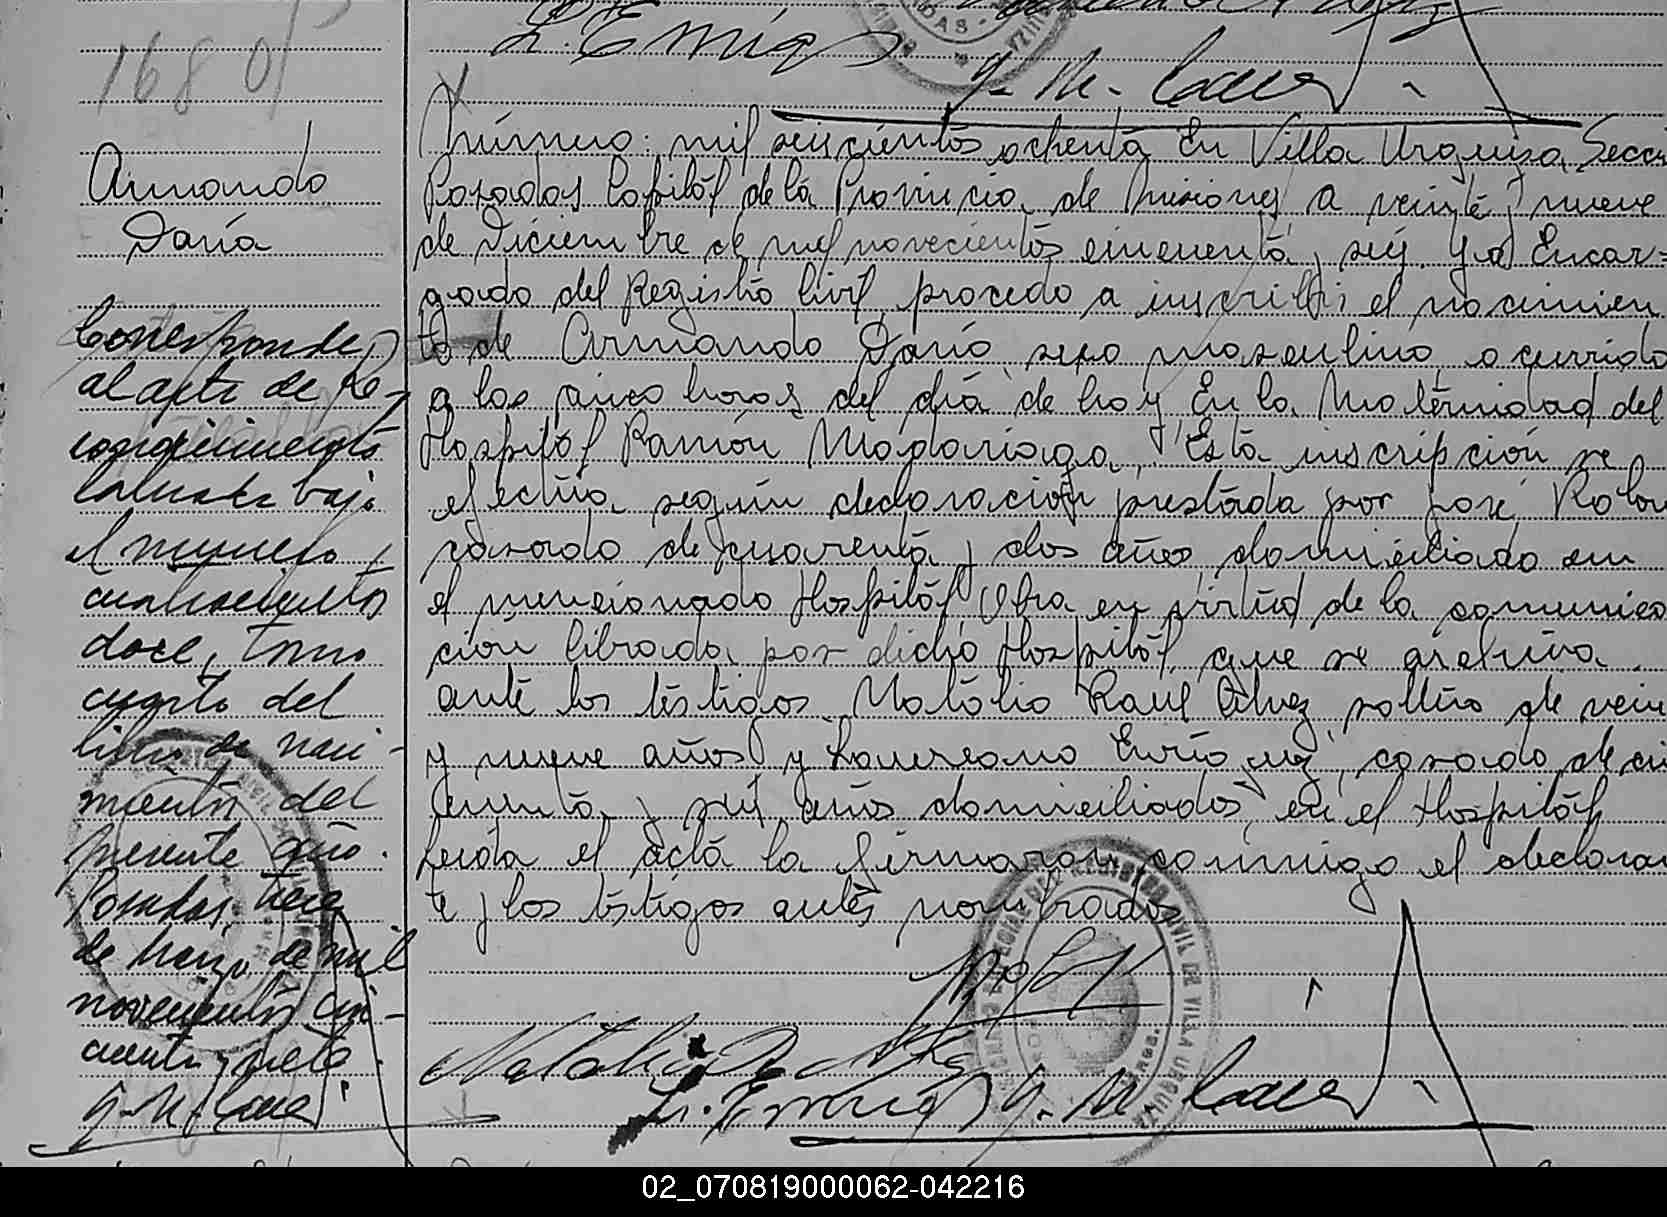 L. Enríq
J. M. Cacer
1680
Armando
Darío
Corresponde
al acta de Re-
conocimiento
labrada bajo
el número
cuatrocientos
doce, tomo
cuarto del
libro de naci-
mientos del
presente año.
Posadas, trece
de marzo de mil
novecientos cin-
cuenta y siete
J. M. Cacer
Número: mil seiscientos ochenta En Villa Urquiza, Secci
Posadas Capital de la Provincia de Misiones a veinte y nueve
de Diciembre de mil novecientos cincuenta y seis. Yo Encar=
gado del Registro Civil, procedo a inscribir el nacimien
to de Armando Darío sexo masculino ocurrido
a las cinco horas del día de hoy En la Maternidad del
Hospital Ramón Madariaga, Esta inscripción se
efectúa según declaración prestada por José Rolon
casado de cuarenta y dos años domiciliado en
el mencionado Hospital Obra en virtud de la comunica
ción librada por dicho Hospital que se archiva.
ante los testigos Natalio Raúl Alvez soltero de vein
y nueve años y Laureano Enríquez, casado de cin
cuenta y seis años domiciliados en el Hospital
Leída el acta la firmaron conmigo el declaran
te y los testigos antes nombrados
J. M. Cacer
REGISTRO CIVIL DE VILLA URQUIZA
02_070819000062-042216